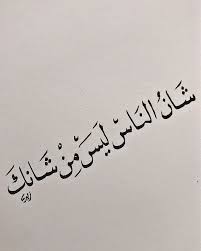 شَانُ النَاسْ لَيسَ مِنْ شَانكَ